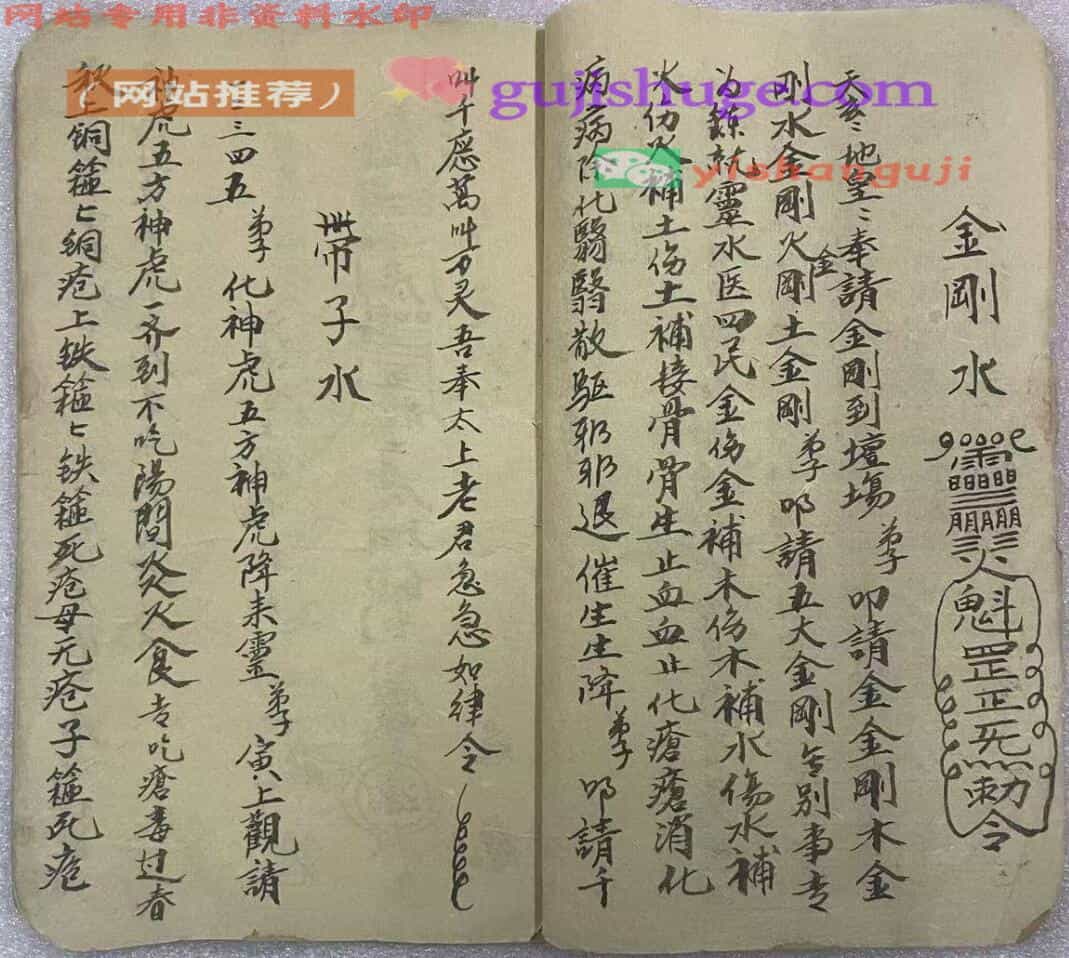 网站专用非资料水印
(网站推荐)
gujishuge.com
yishanguji
金剛水
魁罡正炁勅令
天叜地皇〻奉請金剛到壇塲弟子叩請金金剛木金
剛水金剛火金剛土金剛弟子叩請五大金剛無別事专
為鍊就靈水医四民金伤金補木伤木補水傷水補
火伤火補土伤土補接骨骨生止血血止化瘡瘡消化
病病除化翳翳散驱邪邪退催生生降弟子叩請千
叫千應萬叫万灵吾奉太上老君急急如律令
帶子水
一二三四五弟子化神虎五方神虎降来靈弟子寅上觀請
神虎五方神虎一齐到不吃陽間炎火食专吃瘡毒过春
秋上铜箍匕铜疮上铁箍匕铁箍死疮母无疮子箍死疮